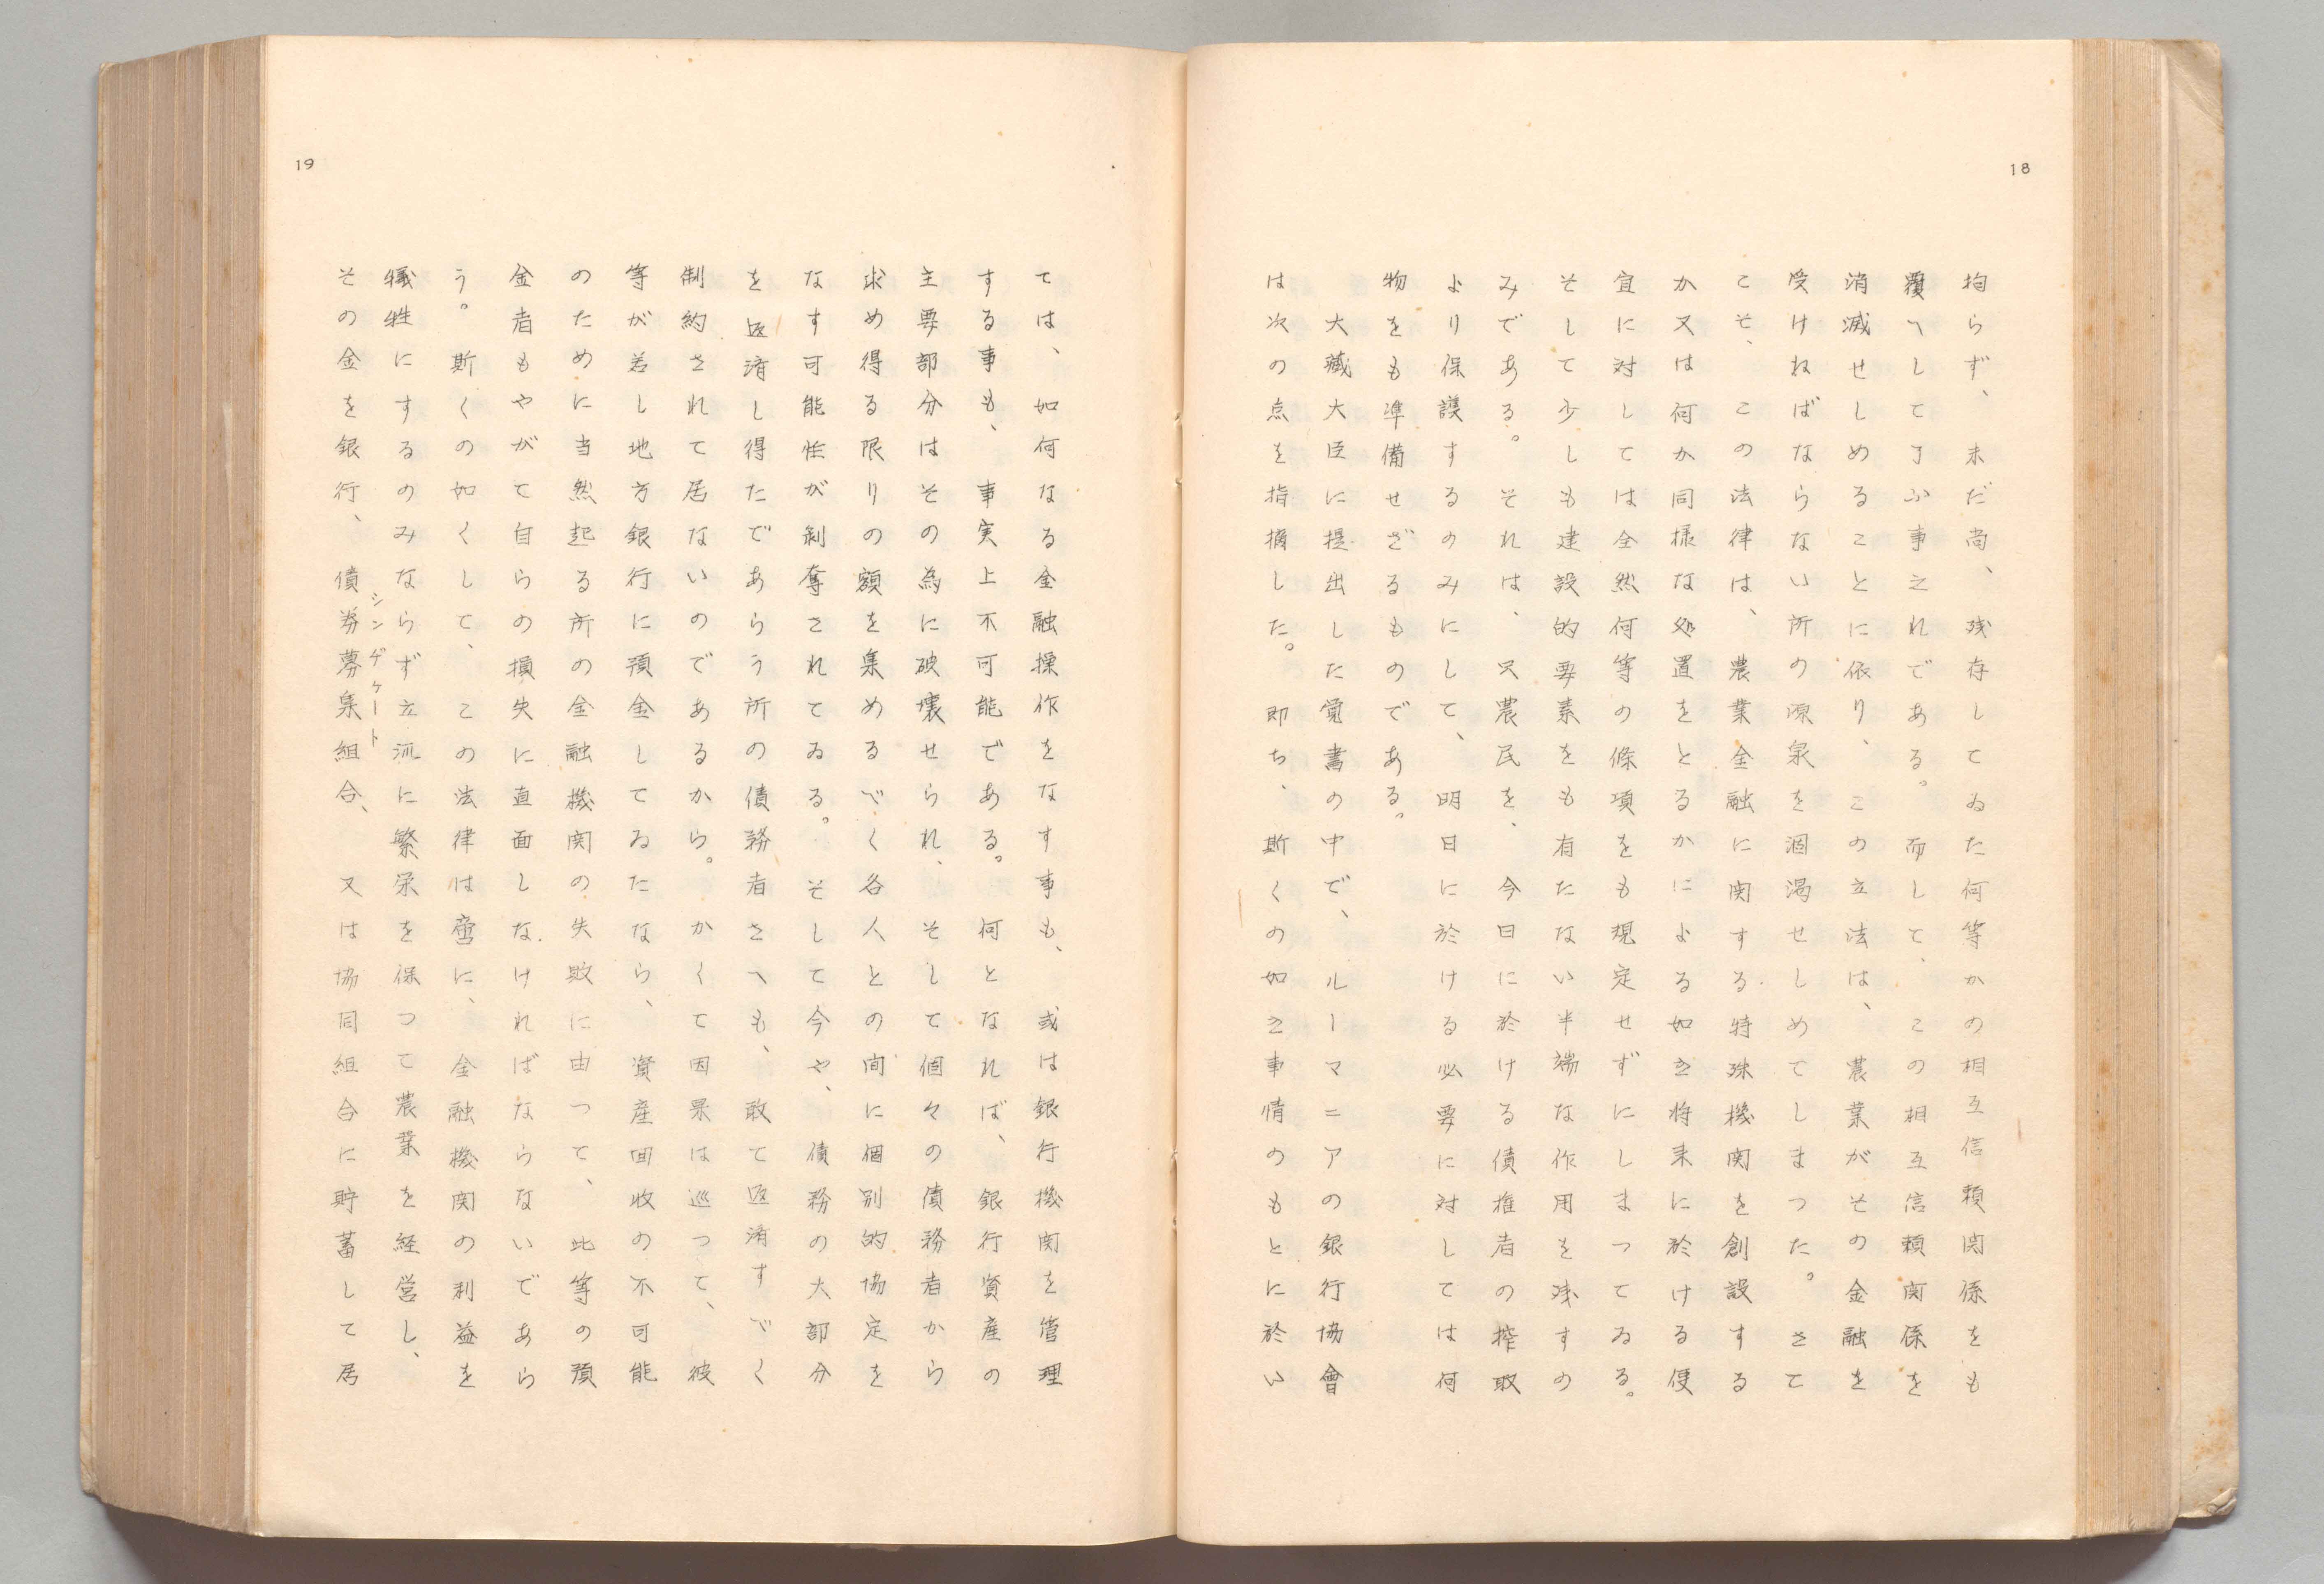 18
拘らず、未だ尚、残存してゐた何等かの相互信頼関係をも
覆へして了ふ事之れである。而して、この相互信頼関係を
消滅せしめることに依り、この立法は、農業がその金融を
受けねばならない所の源泉を涸渇せしめてしまつた。さて
こそ、この法律は、農業金融に関する特殊機関を創設する
か又は何か同様な処置をとるかによる如き将来に於ける便
宜に対しては全然何等の條項をも規定せずにしまつてゐる。
そして少しも建設的要素をも有たない半端な作用を残すの
みである。それは、又農民を、今日に於ける債推者の搾取
より保護するのみにして、明日に於ける必要に対しては何
物をも準備せざるものである。
大藏大臣に提出した覚書の中で、ルーマニアの銀行協會
は次の点を指摘した。即ち、斯くの如き事情のもとに於い
19
ては、如何なる金融操作をなす事も、或は銀行機関を管理
する事も、事実上不可能である。何となれば、銀行資産の
主要部分はその為に破壊せられ、そして個々の債務者から
求め得る限りの額を集めるべく各人との間に個別的協定を
なす可能性が剥奪されてゐる。そして今や、債務の大部分
を返済し得たであらう所の債務者さへも、敢て返済すべく
制約されて居ないのであるから。かくて因果は巡つて、彼
等が若し地方銀行に預金してゐたなら、資産回收の不可能
のために当然起る所の金融機関の失敗に由つて、此等の預
金者もやがて自らの損失に直面しなければならないであら
う。斯くの如くして、この法律は啻に、金融機関の利益を
犠牲にするのみならず立派に繁栄を保つて農業を経営し、
その金を銀行、債券募集組合、又は協同組合に貯蓄して居
シンヂケート